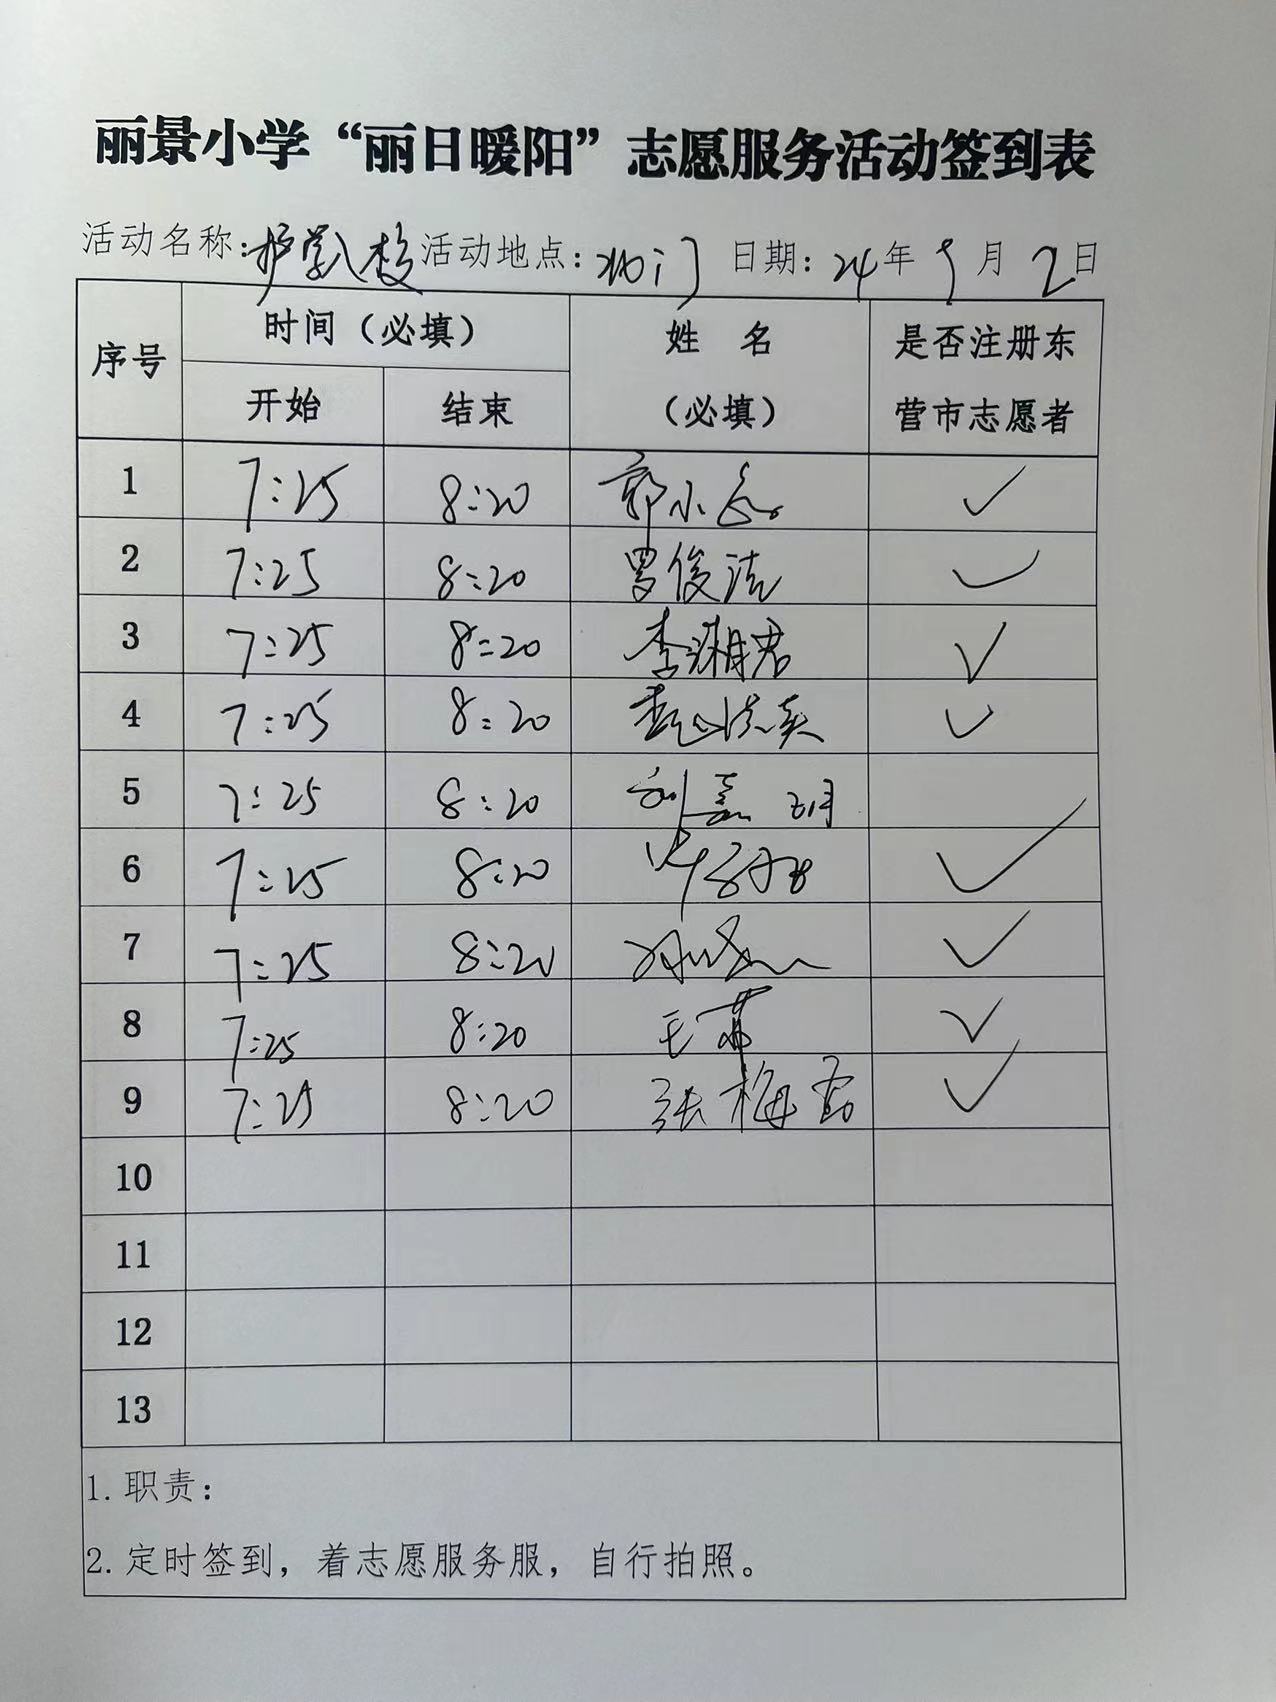 丽景小学“丽日暖阳”志愿服务活动签到表
活动名称:护学入校 活动地点:北门 日期:24年9月2日
序号 时间（必填） 姓 名（必填） 是否注册东营市志愿者
开始 结束
1 7:25 8:20 郭小 ✓
2 7:25 8:20 罗俊洁 ✓
3 7:25 8:20 李湘君 ✓
4 7:25 8:20 ✓
5 7:25 8:20 刘嘉玥
6 7:25 8:20 ✓
7 7:25 8:20 ✓
8 7:25 8:20 王 ✓
9 7:25 8:20 张梅 ✓
10
11
12
13
1.职责：
2.定时签到，着志愿服务服，自行拍照。